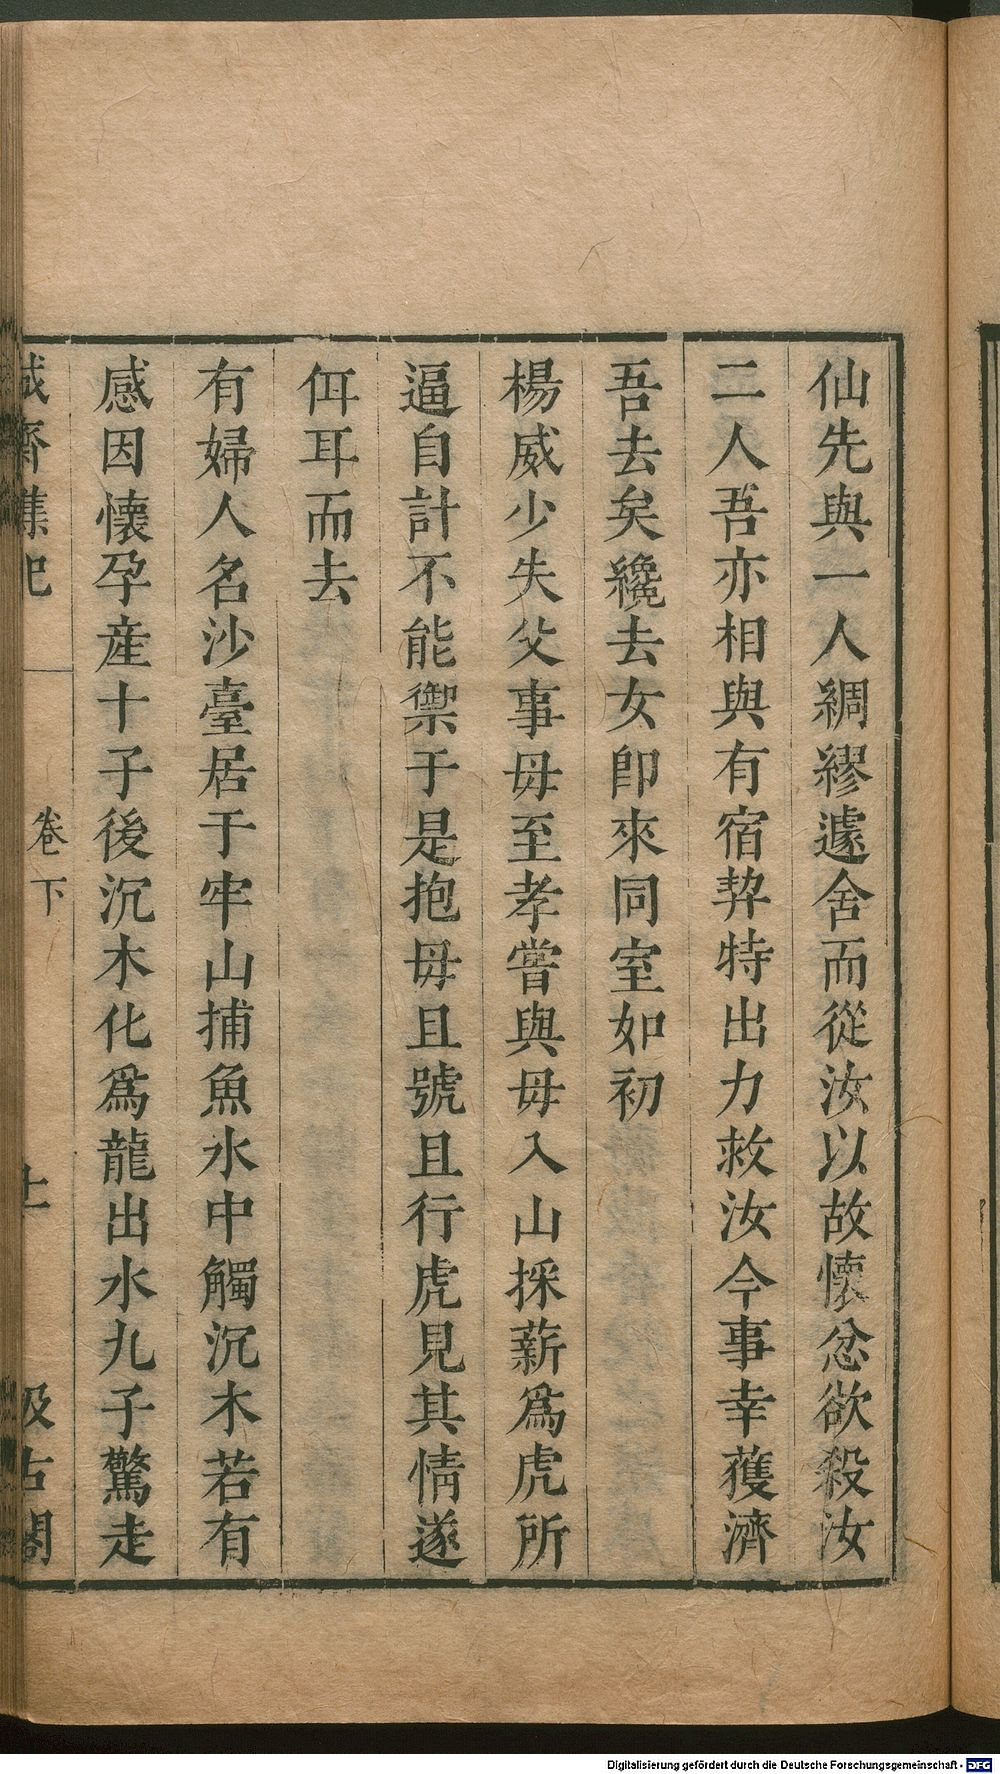 仙先與一人綢繆遽舍而從汝以故懷忿欲殺汝
二人吾亦相與有宿契特出力救汝今事幸獲濟
吾去矣纔去女卽來同室如初
楊威少失父事母至孝嘗與母入山採薪爲虎所
逼自計不能禦于是抱母且號且行虎見其情遂
佴耳而去
有婦人名沙臺居于牢山捕魚水中觸沉木若有
感因懷孕產十子後沉木化爲龍出水九子驚走
誠齋襍記
卷下
汲古閣
Digitalisierung gefördert durch die Deutsche Forschungsgemeinschaft - DFG